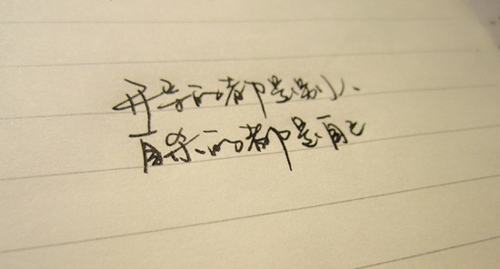 开导的都是别人、
自杀的都是自己